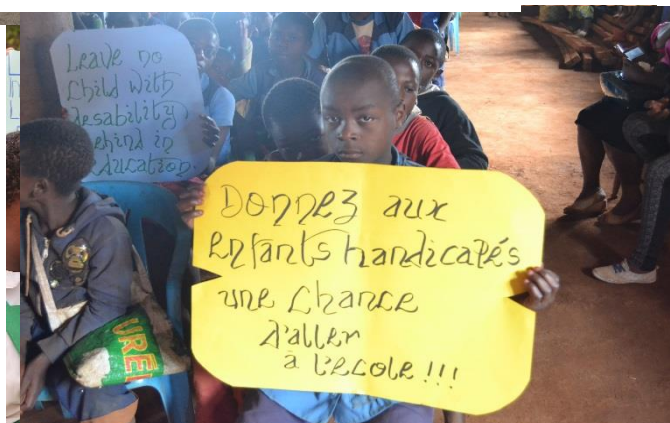 Leave no
Child with
desability
behind in
Education.
Donnez aux
enfants handicapés
une chance
d'aller
à l'ecole !!!
UREI